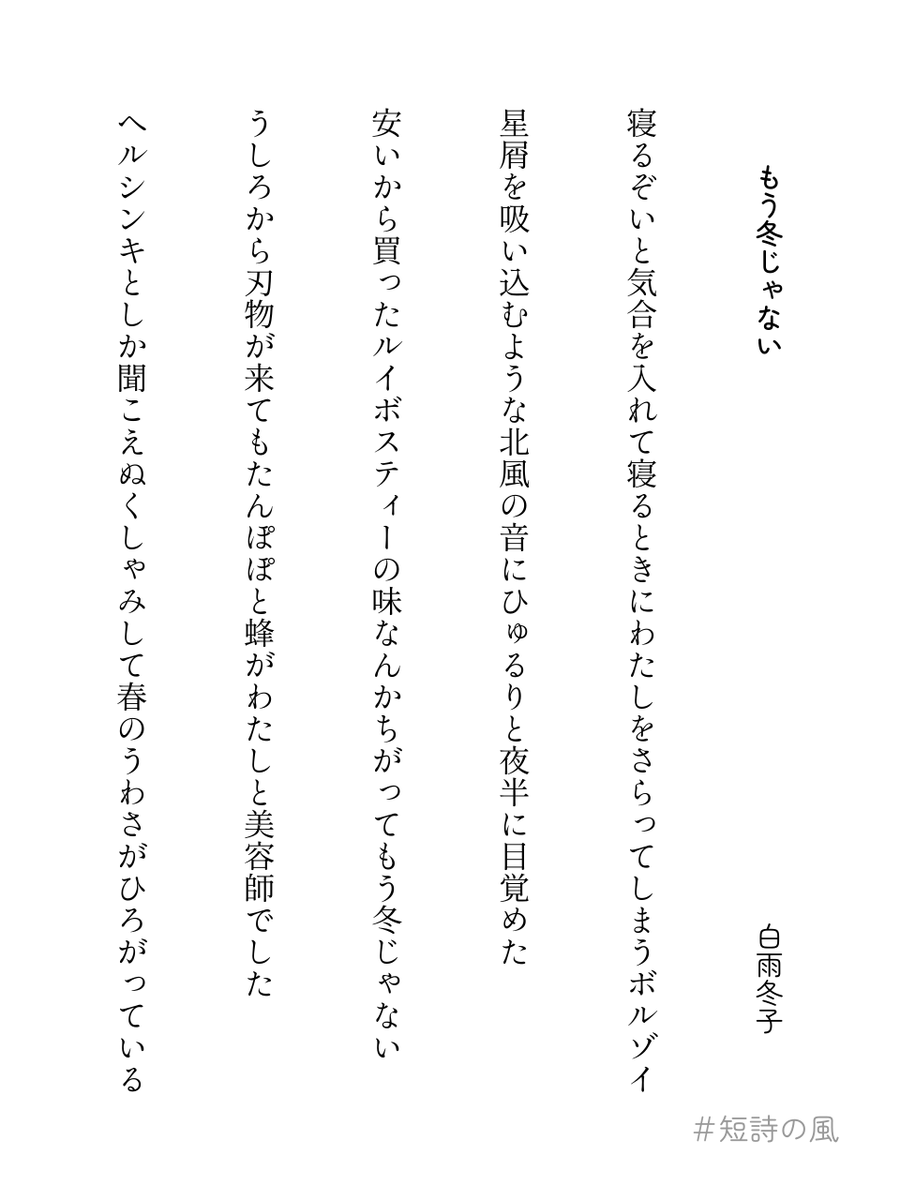 もう冬じゃない
白雨冬子
寝るぞいと気合を入れて寝るときにわたしをさらってしまうボルゾイ
星屑を吸い込むような北風の音にひゅるりと夜半に目覚めた
安いから買ったルイボスティーの味なんかちがってもう冬じゃない
うしろから刃物が来てもたんぽぽと蜂がわたしと美容師でした
ヘルシンキとしか聞こえぬくしゃみして春のうわさがひろがっている
#短詩の風